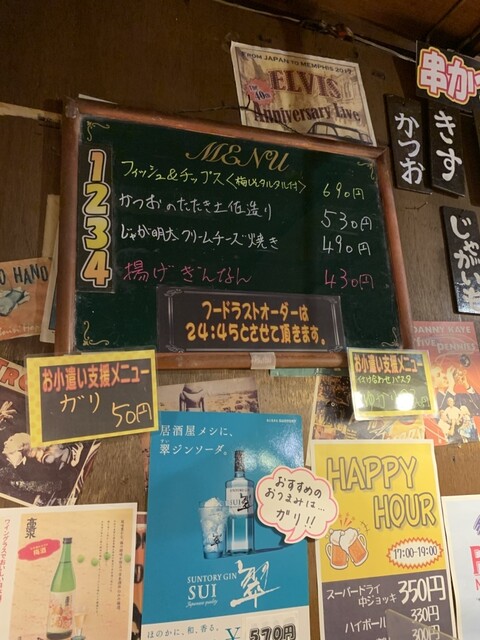 FROM JAPAN TO MEMPHIS 2017
ELVIS
Anniversary Live
串か
かつお
きす
じゃがい
MENU
1 フィッシュ&チップス〈梅しそタルタル付〉 690円
2 かつおのたたき土佐造り 530円
3 じゃが明太クリームチーズ焼き 490円
4 揚げぎんなん 430円
フードラストオーダーは
24:45とさせて頂きます。
お小遣い支援メニュー
ガリ
50円
お小遣い支援メニュー
DANNY KAYE
FIVE PENNIES
居酒屋メシに、
翠ジンソーダ。
おすすめの
おつまみは…
ガリ!!
SUI
翠
SUNTORY GIN
SUI
翠
ほのかに、和、香る。
¥570円
HAPPY
HOUR
17:00-19:00
スーパードライ
中ジョッキ 350円
ハイボール 330円
300円